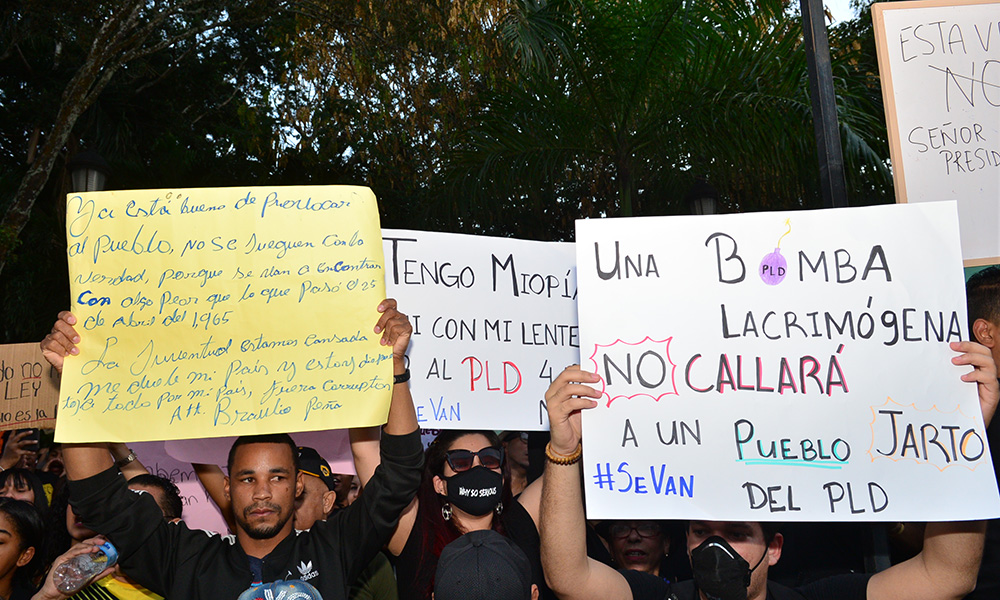 Ya está bueno de provocar
al Pueblo, no se jueguen con la
verdad, porque se van a encontrar
con algo peor que lo que pasó el 25
de Abril del 1,965
La Juventud estamos cansada
me duele mi país y estoy dispuesto
a todo por mi país, fuera corruptos
Att. Braulio Peña
TENGO MIOPÍ
I CON MI LENTE
AL PLD 4
eVAN
UNA BOMBA
PLD
LACRIMÓGENA
NO CALLARÁ
A UN PUEBLO JARTO
#SeVAN DEL PLD
ESTA V
NO
SEÑOR
PRESID
NO
LEY
es la
adidas
WHY SO SERIOUS